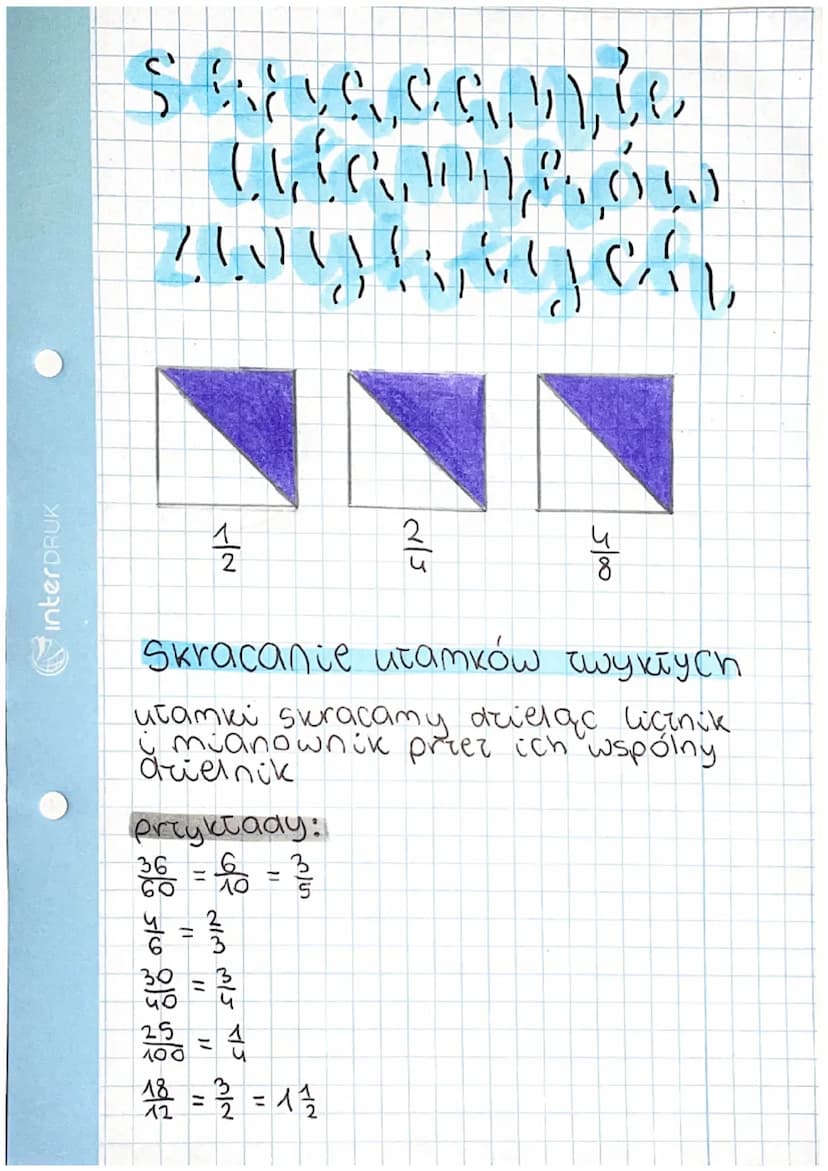 Skracanie
ułamków
zwykłych
1/2 2/4 4/8
Skracanie ułamków zwykłych
ułamki skracamy dzieląc licznik
i mianownik przez ich wspólny
dzielnik
przykłady:
36/60 = 6/10 = 3/5
4/6 = 2/3
30/40 = 3/4
25/100 = 1/4
18/12 = 3/2 = 1 1/2
interDRUK